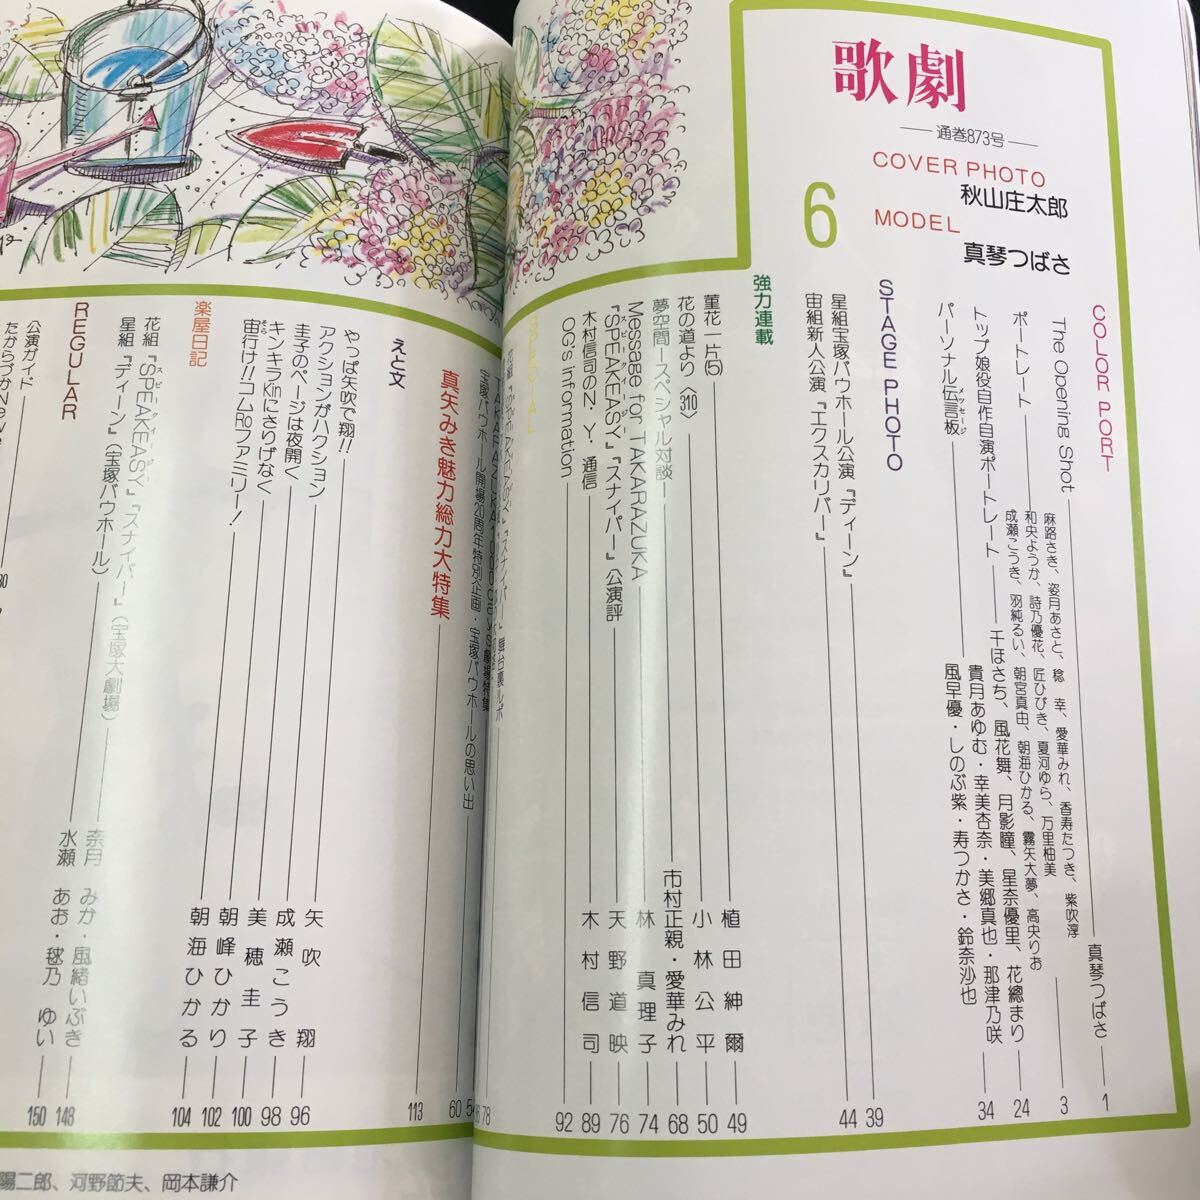 歌劇
通巻873号
COVER PHOTO
秋山庄太郎
MODEL
真琴つばさ
6
COLOR PORT
The Opening Shot 真琴つばさ 1
ポートレート 3
麻路さき、姿月あさと、稔 幸、愛華みれ、香寿たつき、紫吹淳
和央ようか、詩乃優花、匠ひびき、夏河ゆら、万里柚美
成瀬こうき、羽純るい、朝宮真由、朝海ひかる、霧矢大夢、高央りお
トップ娘役自作自演ポートレート 千ほさち、風花舞、月影瞳、星奈優里、花總まり 24
パーソナル伝言板 貴月あゆむ・幸美杏奈・美郷真也・那津乃咲 34
メッセージ
風早優・しのぶ紫・寿つかさ・鈴奈沙也
STAGE PHOTO
星組宝塚バウホール公演『ディーン』 39
宙組新人公演『エクスカリバー』 44
強力連載
菫花一片(5) 植田紳爾 49
花の道より〈310〉 小林公平 50
夢空間ースペシャル対談 市村正親・愛華みれ 68
Message for TAKARAZUKA 林 真理子 74
『SPEAKEASY』『スナイパー』公演評 天野道映 76
スピークイージー
木村信司のN・Y・通信 木村信司 89
OG's information 92
SPECIAL
78
宝塚バウホール開場20周年特別企画・宝塚バウホールの思い出 60
真矢みき魅力総力大特集 113
えと文
やっぱ矢吹で翔!! 矢吹 翔 96
アクションがハクション 成瀬こうき 98
圭子のページは夜開く 美穂圭子 100
キンキラKinにさりげなく 朝峰ひかり 102
宙行け!!コムRoファミリー! 朝海ひかる 104
そら
楽屋日記
花組『SPEAKEASY』『スナイパー』（宝塚大劇場） 奈月 みか・風緒いぶき 148
スピークイージー
星組『ディーン』（宝塚バウホール） 水瀬 あお・毬乃 ゆい 150
REGULAR
公演ガイド
たからづかNews
陽二郎、河野節夫、岡本謙介